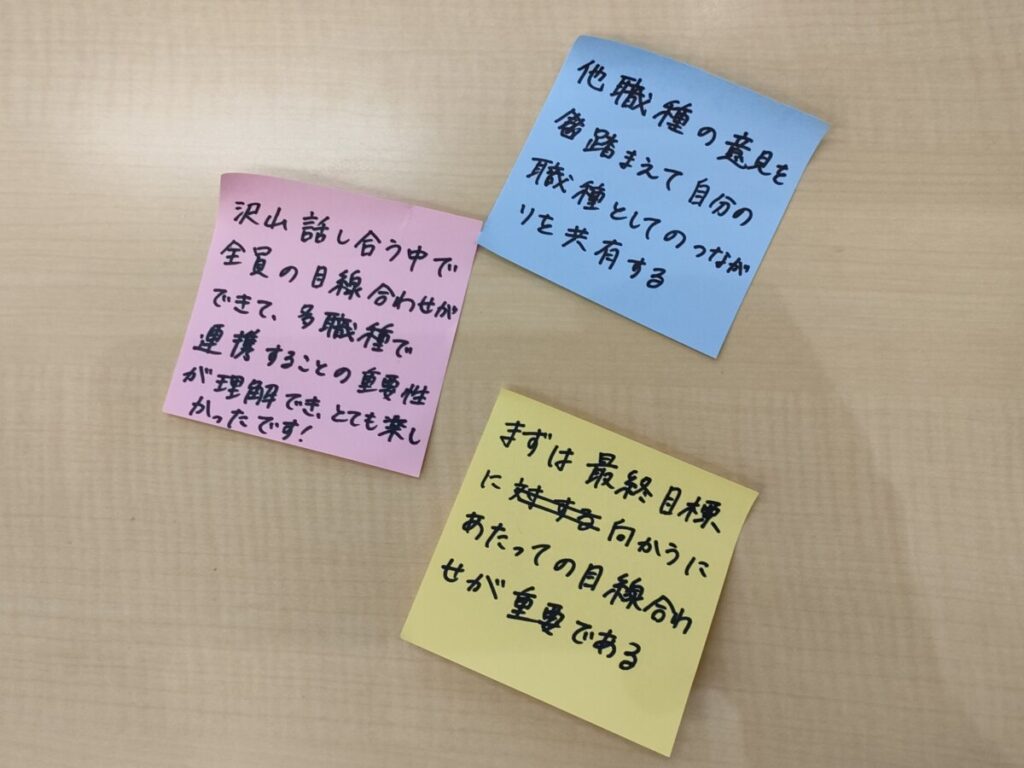 沢山話し合う中で
全員の目線合わせが
できて、多職種で
連携することの重要性
が理解でき、とても楽し
かったです!
他職種の意見を
踏まえて自分の
職種としてのつなが
りを共有する
まずは最終目標
に対する向かうに
あたっての目線合わ
せが重要である